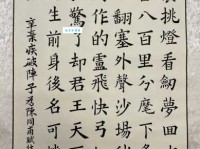 挑燈看釼夢回
八百里分麾下
翻塞外聲沙場
作的盧飛快弓
驚了却君王天
生前身後名可
辛棄疾破陣子為陳同甫賦